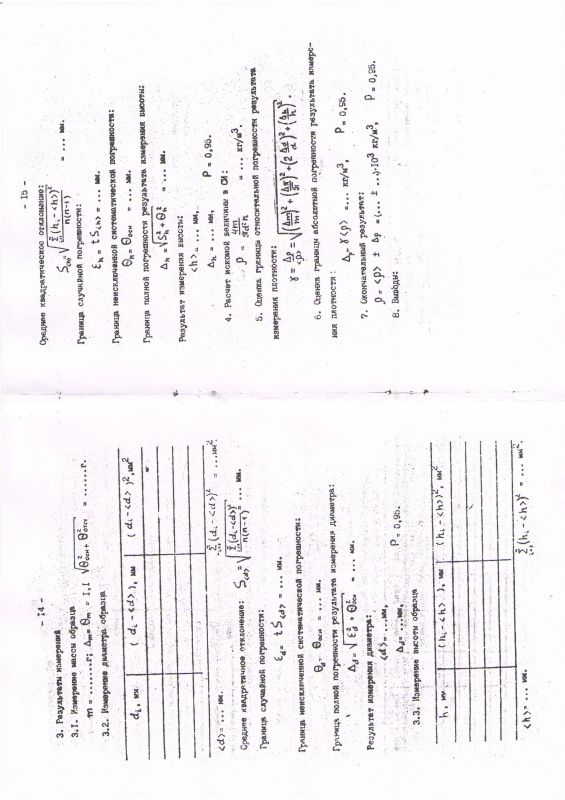 - 14 -
3. Результаты измерений
3.1. Измерение массы образца
m = .......г; Δm = Θm = 1,1 √Θ²осн + Θ²отсч = ......г.
3.2. Измерение диаметра образца
di, мм ( di - <d> ), мм ( di - <d> )², мм²
<d> = ... мм. Σ(di - <d>)² = ...мм².
Среднее квадратичное отклонение: S<d> = √Σ(di - <d>)²/n(n-1) = ... мм.
Граница случайной погрешности:
εd = t S<d> = ... мм.
Граница неисключенной систематической погрешности:
Θd = Θосн = ... мм.
Граница полной погрешности результата измерения диаметра:
Δd = √ε²d + Θ² = ... мм.
Результат измерения диаметра:
<d> = ...мм,
Δd = ...мм, P = 0,95.
3.3. Измерение высоты образца
h, мм (hi - <h> ), мм (hi - <h>)², мм²
<h> = ... мм. Σ(hi - <h>)² = ... мм².
- 15 -
Среднее квадратическое отклонение:
S<h> = √Σ(hi - <h>)²/n(n-1) = ... мм.
Граница случайной погрешности:
εh = t S<h> = ... мм.
Граница неисключенной систематической погрешности:
Θh = Θосн = ... мм.
Граница полной погрешности результата измерения высоты:
Δh = √S²h + Θ²h = ... мм.
Результат измерения высоты:
<h> = ... мм,
Δh = ... мм, P = 0,95.
4. Расчет искомой величины в СИ:
ρ = 4m/πd²h = ... кг/м³.
5. Оценка границы относительной погрешности результата
измерения плотности:
γ = Δρ/<ρ> = √(Δm/m)² + (Δπ/π)² + (2 Δd/d)² + (Δh/h)² .
6. Оценка границы абсолютной погрешности результата измере-
ния плотности :
Δρ = γ <ρ> = ... кг/м³, P = 0,95.
7. Окончательный результат:
ρ = <ρ> ± Δρ = (... ± ...)·10³ кг/м³, P = 0,95.
8. Выводы: